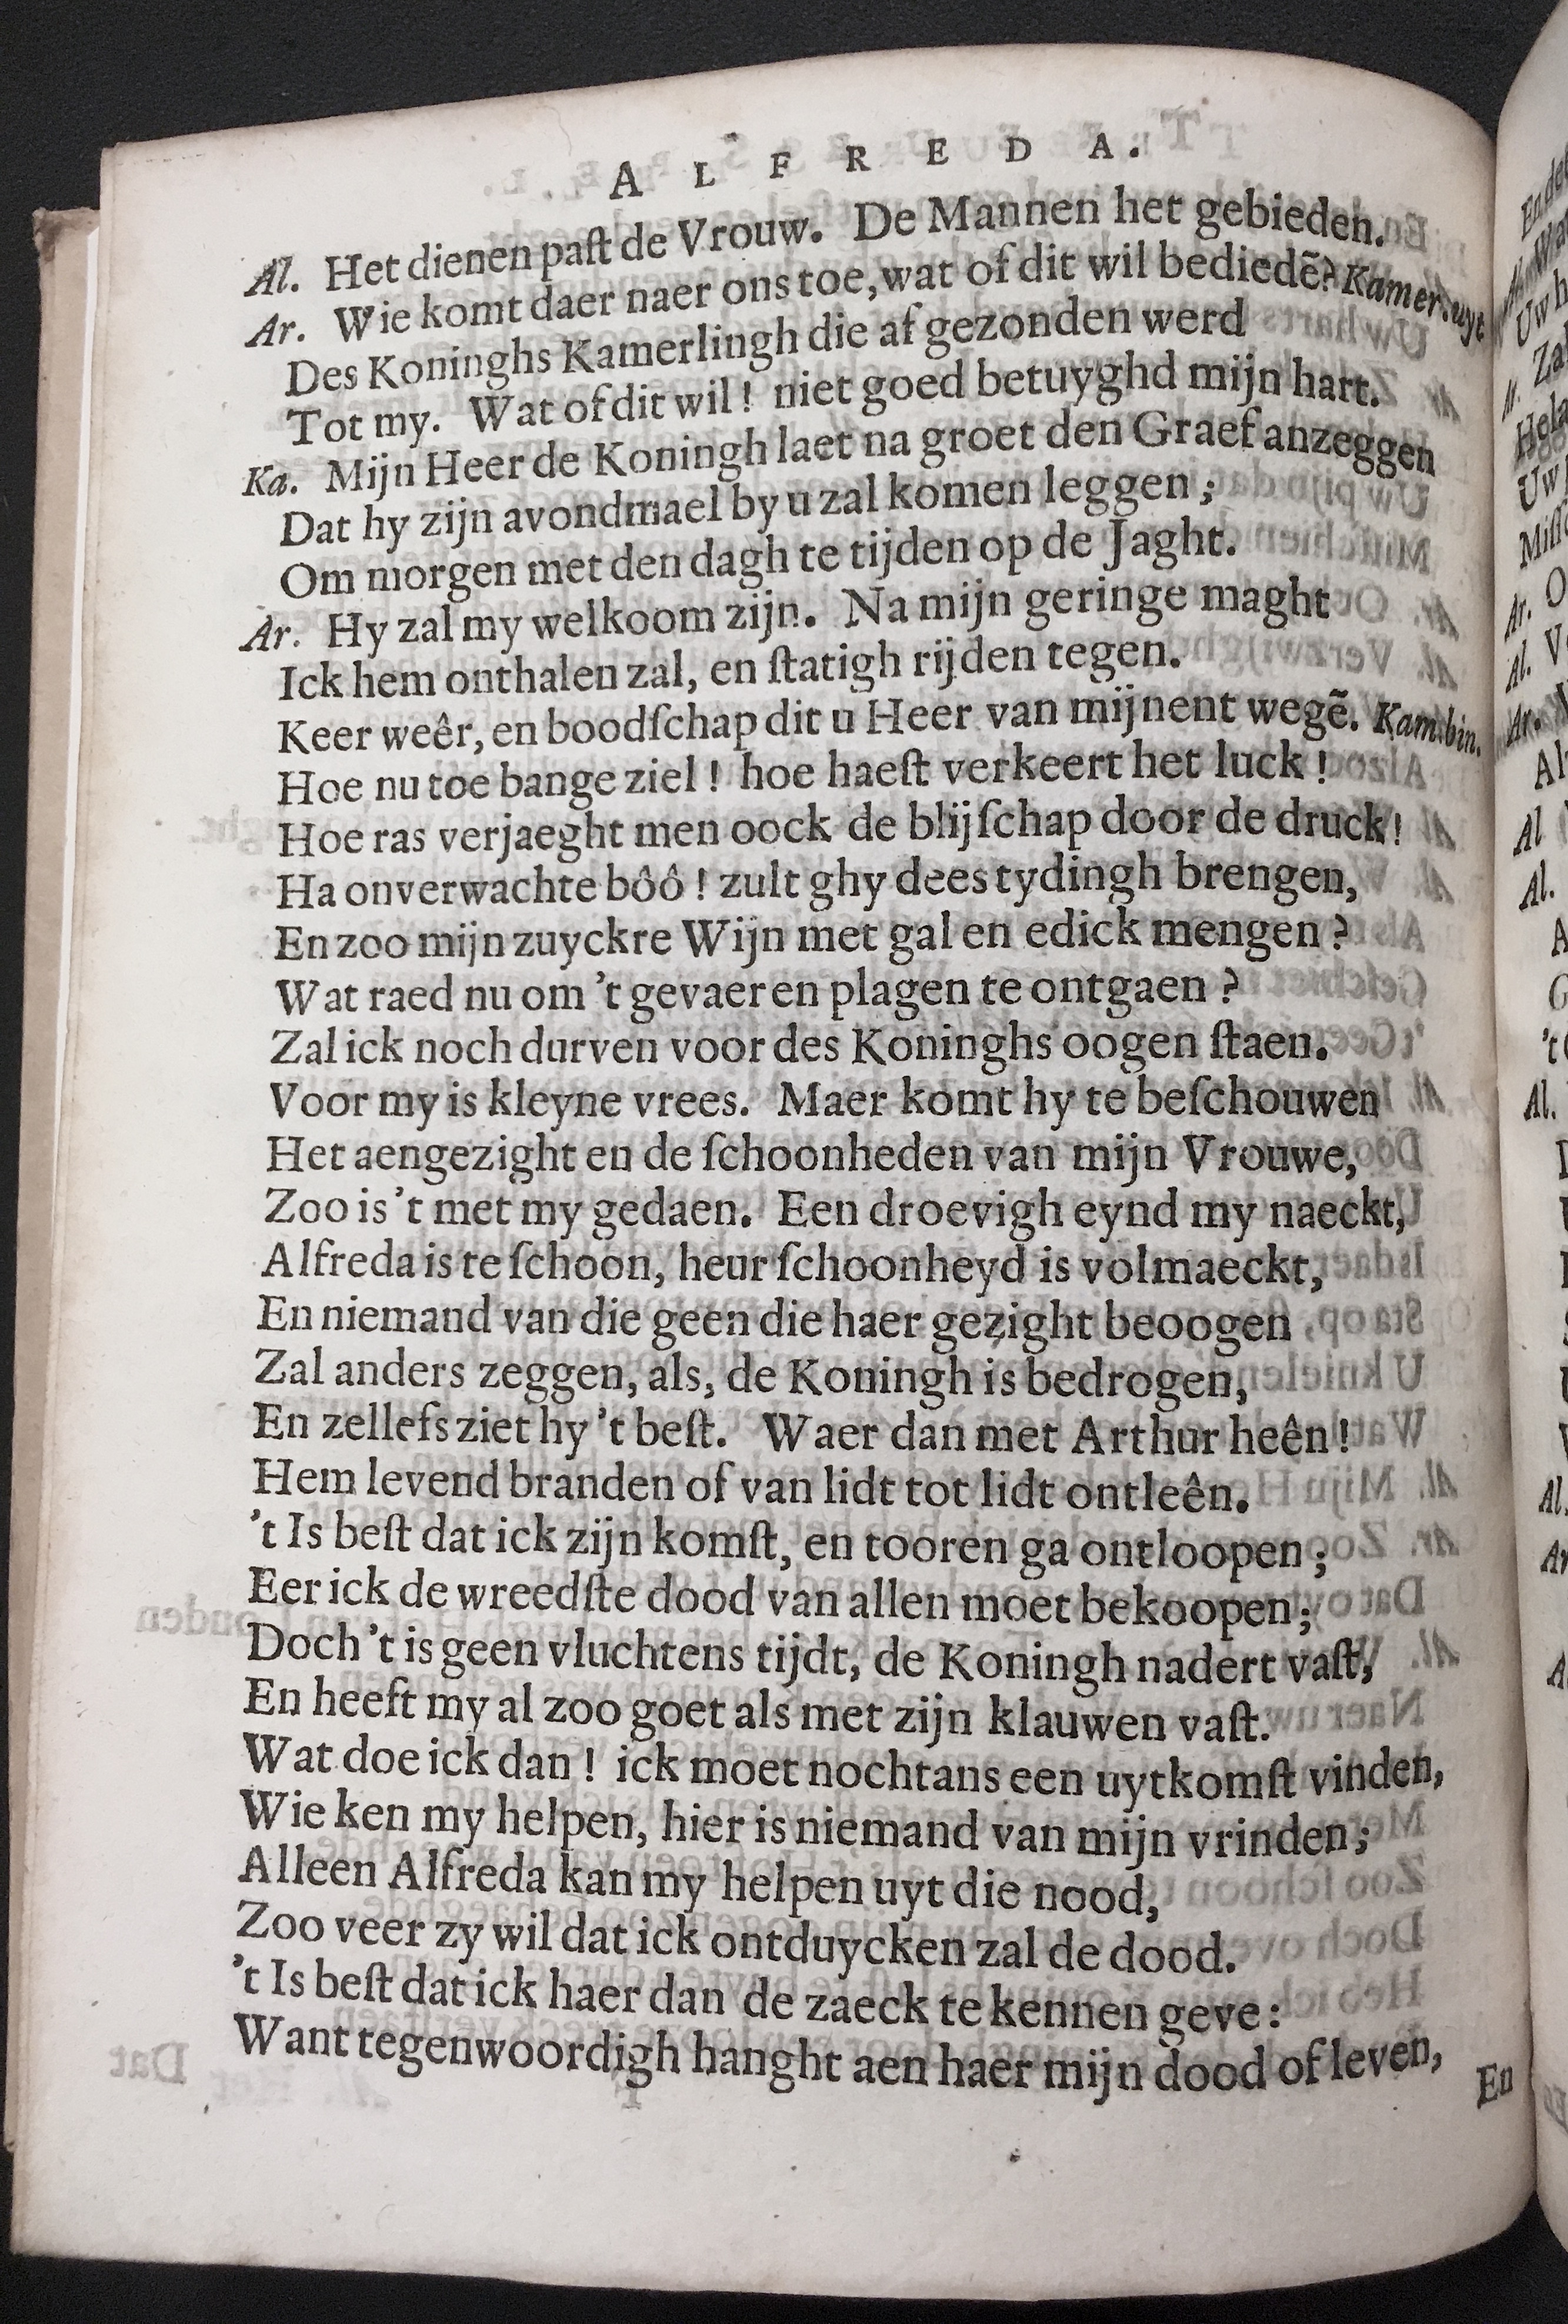 ALFREDA.
Al. Het dienen paſt de Vrouw. De Mannen het gebieden.
Ar. Wie komt daer naer ons toe, wat of dit wil bediedẽ? Kamer. uyt
Des Koninghs Kamerlingh die af gezonden werd
Tot my. Wat of dit wil! niet goed betuyghd mijn hart.
Ka. Mijn Heer de Koningh laet na groet den Graef anzeggen
Dat hy zijn avondmael by u zal komen leggen;
Om morgen met den dagh te tijden op de Jaght.
Ar. Hy zal my welkoom zijn. Na mijn geringe maght
Ick hem onthalen zal, en ſtatigh rijden tegen.
Keer weêr, en boodſchap dit u Heer van mijnent wegẽ. Kam. bin.
Hoe nu toe bange ziel! hoe haeſt verkeert het luck!
Hoe ras verjaeght men oock de blijſchap door de druck!
Ha onverwachte bôô! zult ghy dees tydingh brengen,
En zoo mijn zuyckre Wijn met gal en edick mengen?
Wat raed nu om 't gevaer en plagen te ontgaen?
Zal ick noch durven voor des Koninghs oogen ſtaen.
Voor my is kleyne vrees. Maer komt hy te beſchouwen
Het aengezight en de ſchoonheden van mijn Vrouwe,
Zoo is 't met my gedaen. Een droevigh eynd my naeckt,
Alfreda is te ſchoon, heur ſchoonheyd is volmaeckt,
En niemand van die geen die haer gezight beoogen
Zal anders zeggen, als, de Koningh is bedrogen,
En zellefs ziet hy 't beſt. Waer dan met Arthur heên!
Hem levend branden of van lidt tot lidt ontleên.
't Is beſt dat ick zijn komſt, en tooren ga ontloopen;
Eer ick de wreedſte dood van allen moet bekoopen;
Doch 't is geen vluchtens tijdt, de Koningh nadert vaſt,
En heeft my al zoo goet als met zijn klauwen vaſt.
Wat doe ick dan! ick moet nochtans een uytkomſt vinden,
Wie ken my helpen, hier is niemand van mijn vrinden;
Alleen Alfreda kan my helpen uyt die nood,
Zoo veer zy wil dat ick ontduycken zal de dood.
't Is beſt dat ick haer dan de zaeck te kennen geve:
Want tegenwoordigh hanght aen haer mijn dood of leven,
En